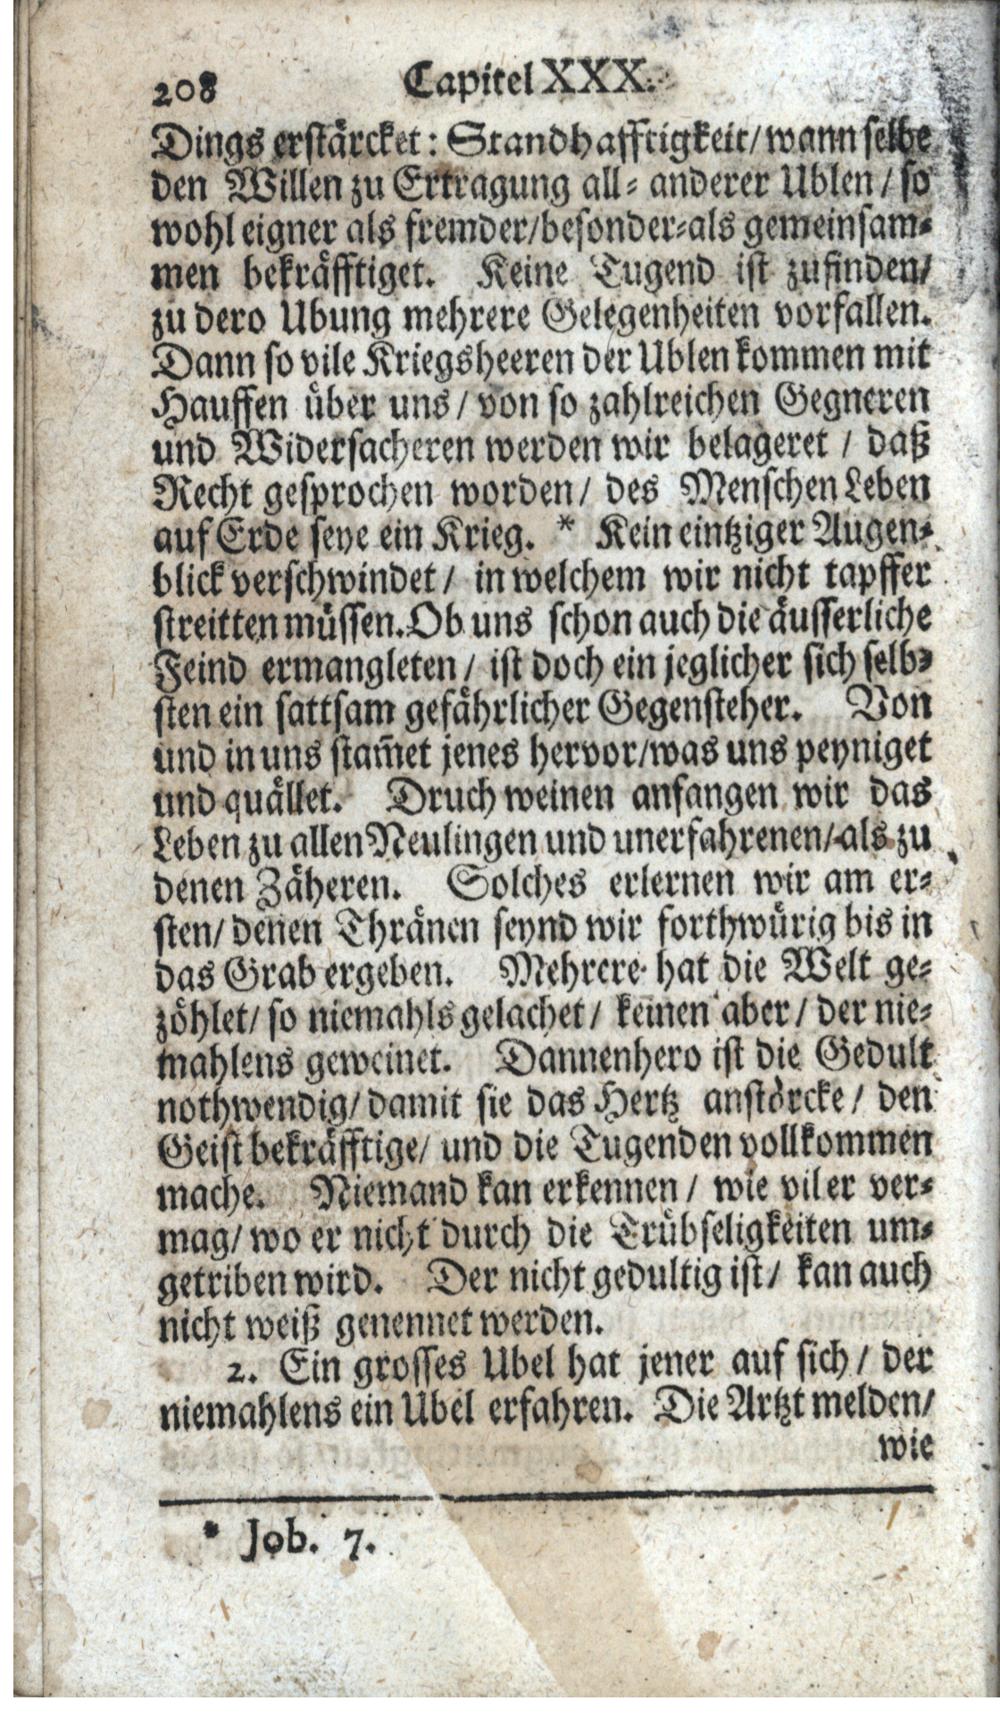 208 Capitel XXX.
Dings erstärcket: Standhafftigkeit/ wann selbe
den Willen zu Ertragung all- anderer Ublen / so
wohl eigner als fremder/besonder-als gemeinsam-
men bekräfftiget. Keine Tugend ist zufinden/
zu dero Ubung mehrere Gelegenheiten vorfallen.
Dann so vile Kriegsheeren der Ublen kommen mit
Hauffen über uns / von so zahlreichen Gegneren
und Widersacheren werden wir belageret / daß
Recht gesprochen worden/ des Menschen Leben
auf Erde seye ein Krieg. * Kein eintziger Augen-
blick verschwindet / in welchem wir nicht tapffer
streitten müssen. Ob uns schon auch die äusserliche
Feind ermangleten / ist doch ein jeglicher sich selb-
sten ein sattsam gefährlicher Gegensteher. Von
und in uns stam̃et jenes hervor/was uns peyniget
und quället. Druch weinen anfangen wir das
Leben zu allen Neulingen und unerfahrenen/als zu
denen Zäheren. Solches erlernen wir am er-
sten/ denen Thränen seynd wir forthwürig bis in
das Grab ergeben. Mehrere hat die Welt ge-
zöhlet/ so niemahls gelachet / keinen aber / der nie-
mahlens geweinet. Dannenhero ist die Gedult
nothwendig/ damit sie das Hertz anstörcke / den
Geist bekräfftige/ und die Tugenden vollkommen
mache. Niemand kan erkennen / wie vil er ver-
mag/ wo er nicht durch die Trübseligkeiten um-
getriben wird. Der nicht gedultig ist / kan auch
nicht weiß genennet werden.
2. Ein grosses Ubel hat jener auf sich / der
niemahlens ein Ubel erfahren. Die Artzt melden/
wie
* Job. 7.